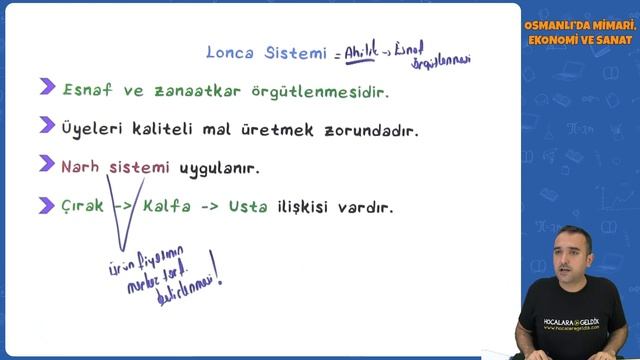 OSMANLI'DA MİMARİ,
EKONOMİ VE SANAT
Lonca Sistemi = Ahilik -> Esnaf
örgütlenmesi
Esnaf ve zanaatkar örgütlenmesidir.
Üyeleri kaliteli mal üretmek zorundadır.
Narh sistemi uygulanır.
Çırak -> Kalfa -> Usta ilişkisi vardır.
ürün fiyatının
merkez taraf.
belirlenmesi!
HOCALARA GELDİK
www.hocalarageldik.com